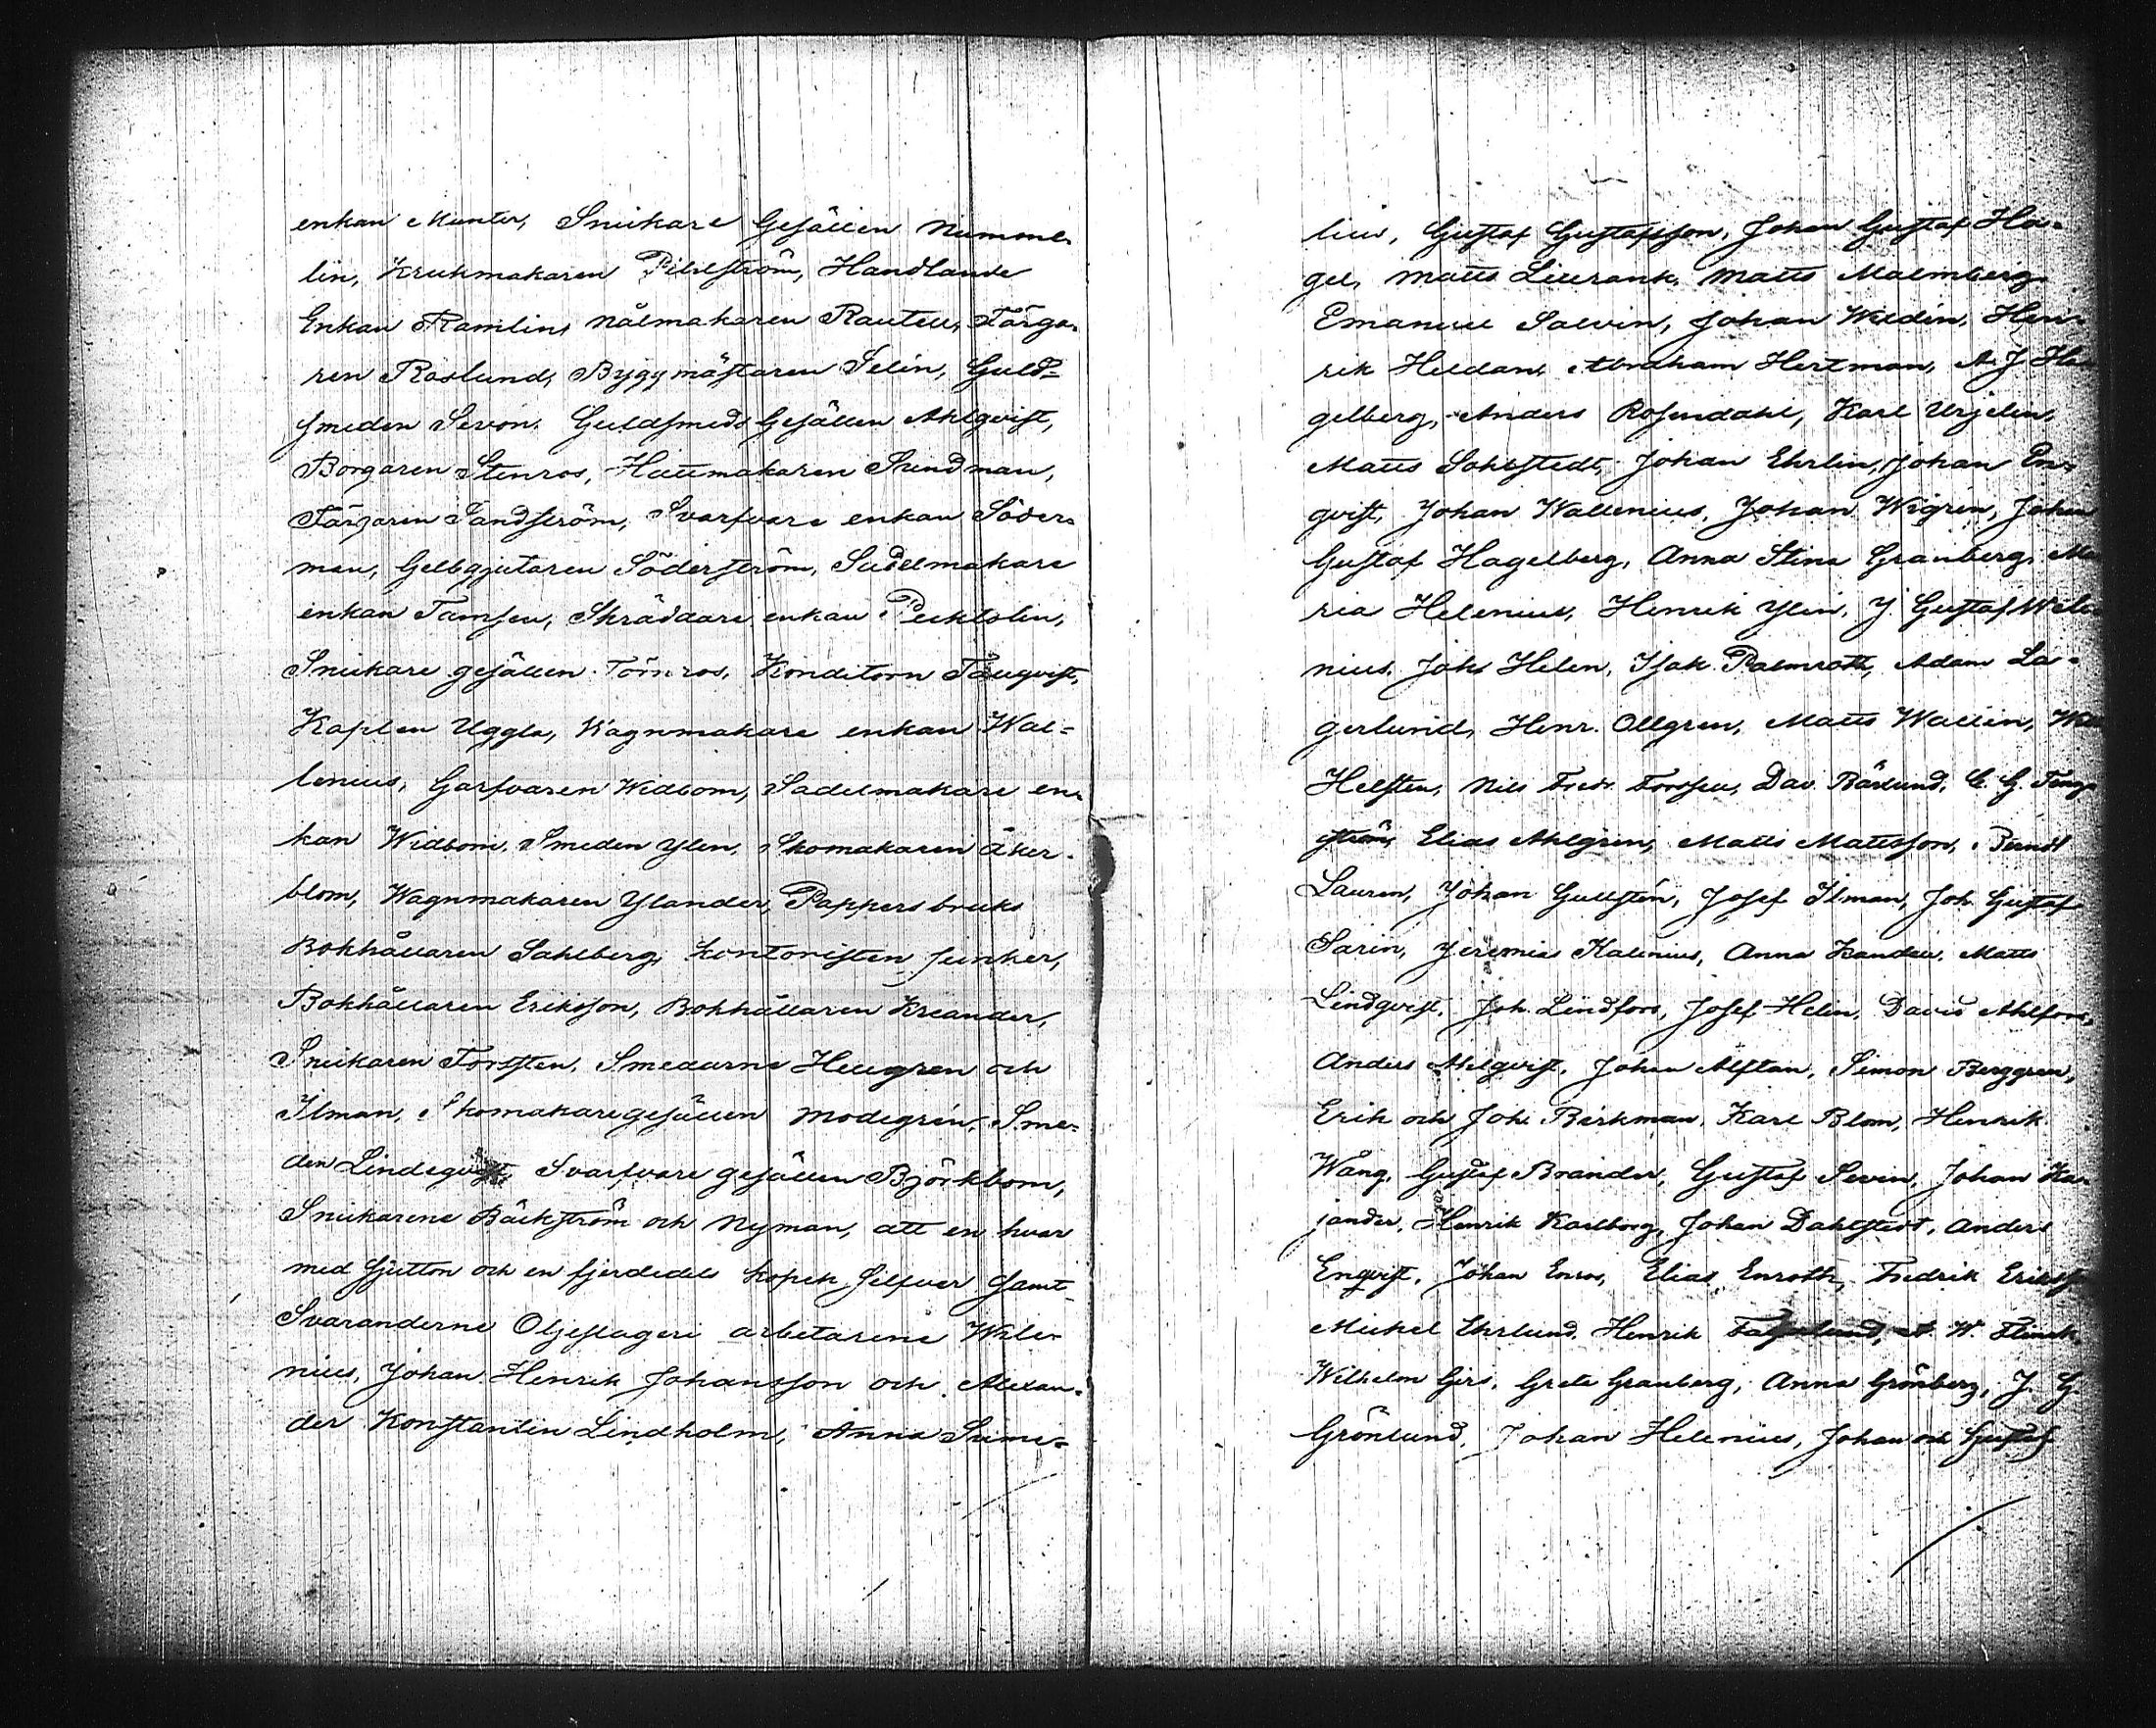 enkan Munter, Snickare Gesällen Nummel-
lin, Krukmakaren Pihlström, Handlande
Enkan Ramlin, Nålmakaren Rautell, Färga-
ren Roslund, Byggmästaren Selin, Guld-
smeden Sevon, Guldsmeds Gesällen Ahlqvist,
Borgaren Stenros, Hattmakaren Sundman,
Färgaren Sandström, Svarfvare enkan Söder-
man, Gelbgjutaren Söderström, Sadelmakare
enkan Tamsen, Skräddare enkan
Snickare gesällen Törnros, Konditorn
Kapten Uggla, Wagnmakare enkan Wal-
lenius, Garfvaren Widbom, Sadelmakare en-
kan Widbom, Smeden Ylen, Skomakaren Åker-
blom, Wagnmakaren Ylander, Pappersbruks
Bokhållaren Sahlberg, kontoristen Junker,
Bokhållaren Eriksson, Bokhållaren Kreander,
Snickaren Forssten, Smedarne Hellgren och
Ilman, Skomakaregesällen Modegrén, Sme-
den Lindeqvist, Svarfvare gesällen Björkbom,
Snickarene Bäckström och Nyman, att en hvar
med sjutton och en fjerdedels kopek silfver samt
Svaranderne Oljeslageri arbetarene Wile-
nius, Johan Henrik Johansson och Alexan-
der Konstantin Lindholm, Anna Sume-
lius, Gustaf Gustafsson, Johan Gustaf Ha-
gel, Matts Lillrank, Matts Malmberg
Emanuel Salvin, Johan Weldin, Hen-
rik Heldan, Abraham Hertman, A J Ha-
gelberg, Anders Rosendahl, Karl Urjelin,
Matts Sohlstedt, Johan Ehrlin, Johan En-
qvist, Johan Wallenius, Johan Wigrén, Johan
Gustaf Hagelberg, Anna Stina Granberg, Ma
ria Helenius, Henrik Ylin, J. Gustaf Wile-
nius, Joh. Helen, Isak Palmroth, Adam La-
gerlund, Henr. Ollgren, Matts Wallin,
Helsten, Nils Fredr. Forssell, Dav. Bärlund, C. G. Teng-
ström, Elias Ahlgren, Matts Mattsson, Berndt
Lauren, Johan Gullstén, Josef Ilman, Joh. Gustaf
Sarin, Jeremias Kalenius, Anna Kandell, Matts
Lindqvist, Joh. Lindfors, Josef Helin, David Ahlfors,
Anders Ahlqvist, Johan Alftan, Simon Berggren,
Erik och Joh. Birkman, Karl Blom, Henrik
Wång, Gustaf Brander, Gustaf Sevin, Johan Ka-
jander, Henrik Karlborg, Johan Dahlstedt, Anders
Enqvist, Johan Enros, Elias Enroth, Fredrik Eriksson
Mickel Ehrlund, Henrik Fagerlund, A. W. Flinck,
Wilhelm Girs, Greta Granberg, Anna Grönberg, J. G
Grönlund, Johan Helenius, Johan och Gustaf